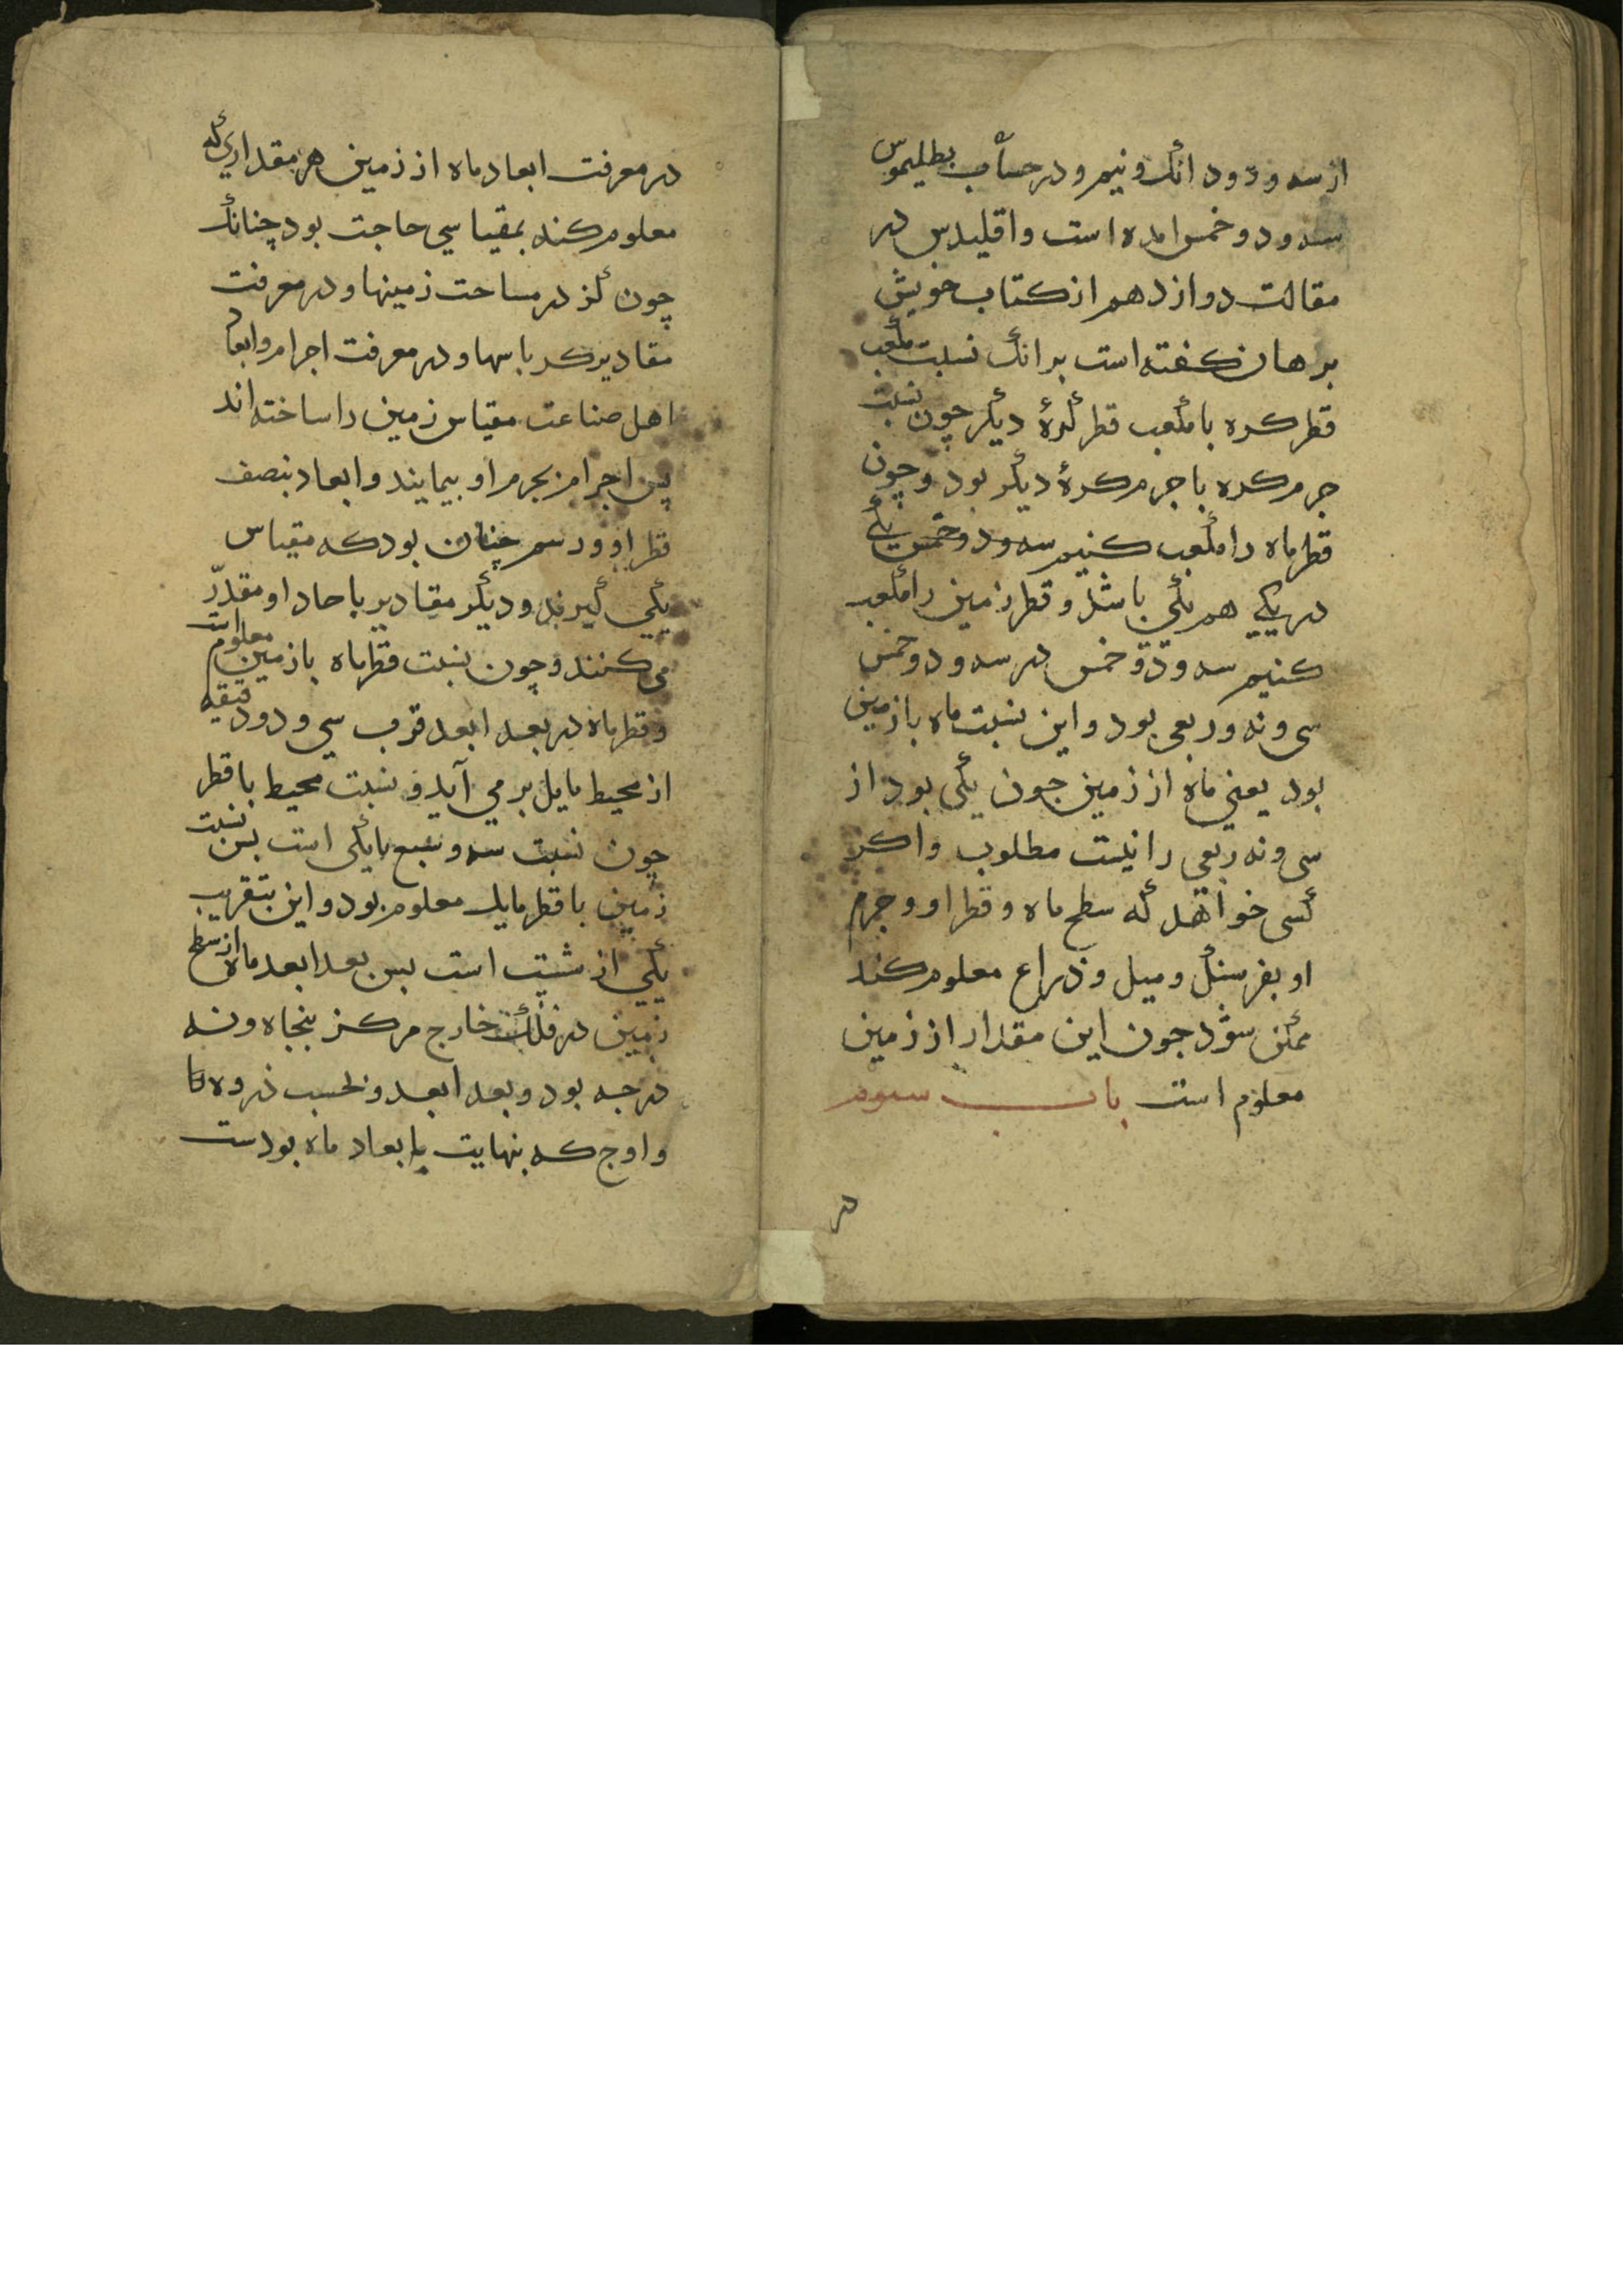 از سه و دو دانک و نیم و در حساب بطلیموس
سه و دو خمس امده است و اقلیدس در
مقالت دوازدهم از کتاب خویش
برهان کفته است بر انک نسبت مکعب
قطر کره با مکعب قطر کرهٔ دیکر چون نسبت
جرم کره با جرم کرهٔ دیکر بود و چون
قطر ماه را مکعب کنیم سه و دو خمس یکی
در یکی هم یکی باشد و قطر زمین را مکعب
کنیم سه و دو خمس در سه و دو خمس
سی و نه و ربعی بود و این نسبت ماه با زمین
بود یعنی ماه از زمین جون یکی بود از
سی و نه ربعی را نیست مطلوب و اکر
کسی خواهد که سطح ماه و قطر او و جرم
او بفرسنک و میل و ذراع معلوم کند
ممکن شود جون این مقدار از زمین
معلوم است باب سوم
در
در معرفت ابعاد ماه از زمین هر مقداری که
معلوم کند بمقیاسی حاجت بود چنانک
چون کز در مساحت زمینها و در معرفت
مقادیر کرباسها و در معرفت اجرام و ابعاد
اهل صناعت مقیاس زمین را ساخته اند
پس اجرام بجرم او بیمایند و ابعاد بنصف
قطر او و رسم چنان بود که مقیاس
یکی کیرند و دیکر مقادیر باحاد او مقدّر
می کنند و چون نسبت قطر ماه با زمین معلوم است
و قطر ماه در بعد ابعد قرب سی و دو دقیقه
از محیط مایل بر می آید و نسبت محیط با قطر
چون نسبت سه و سبع با یکی است بس نسبت
زمین با قطر مایل معلوم بود و این بتقریب
یکی از شست است بس بعد ابعد ماه از سطح
زمین در فلک خارج مرکز بنجاه و نه
درجه بود و بعد ابعد و بحسب ذروه
و اوج که بنهایت ابعاد ماه بودست